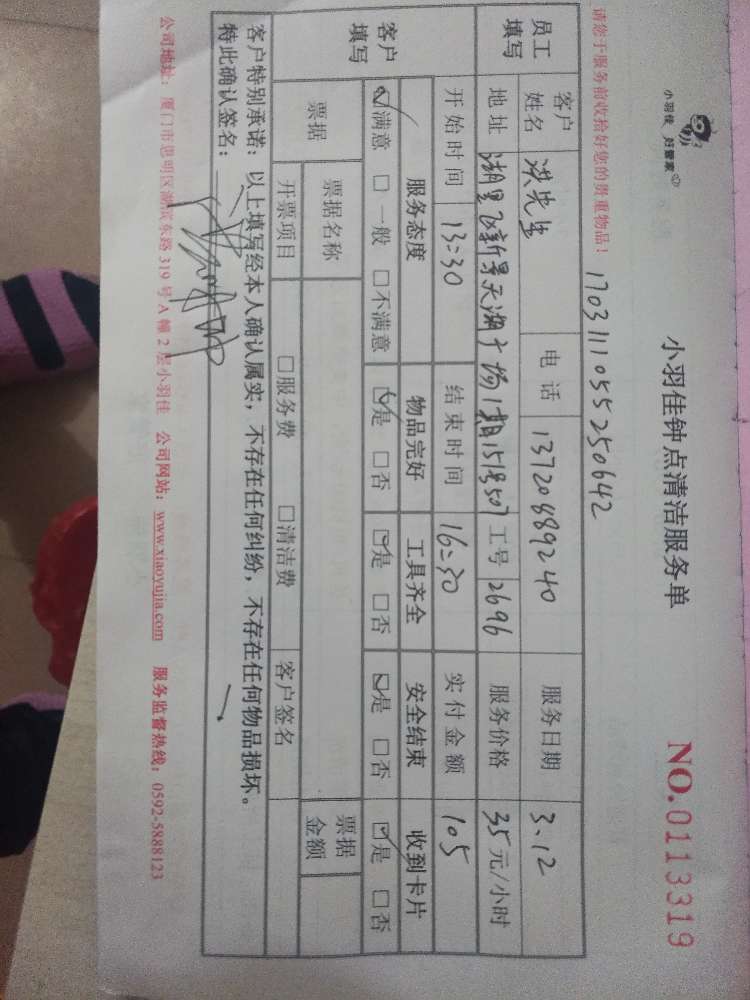 小羽佳 好管家
小羽佳钟点清洁服务单
NO.0113319
请您于服务前收拾好您的贵重物品!
1703111055250642
员工填写
客户姓名 洪先生 电话 13720889240 服务日期 3、12
地址 湖里区新景天湖广场1期1518507 工号 2696 服务价格 35元/小时
开始时间 13:30 结束时间 16:30 实付金额 105
客户填写
服务态度 物品完好 工具齐全 安全结束 收到卡片
☑满意 □一般 □不满意 ☑是 □否 ☑是 □否 ☑是 □否 ☑是 □否
票据 票据名称 票据金额
开票项目 □服务费 □清洁费 客户签名
客户特别承诺:以上填写经本人确认属实,不存在任何纠纷,不存在任何物品损坏。
特此确认签名:
公司地址:厦门市思明区湖滨东路319号A幢2层小羽佳 公司网站:www.xiaoyujia.com 服务监督热线:0592-5888123